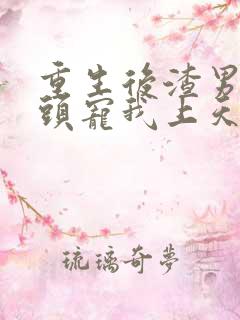 重生後渣男
頭寵我上天
琉璃奇夢